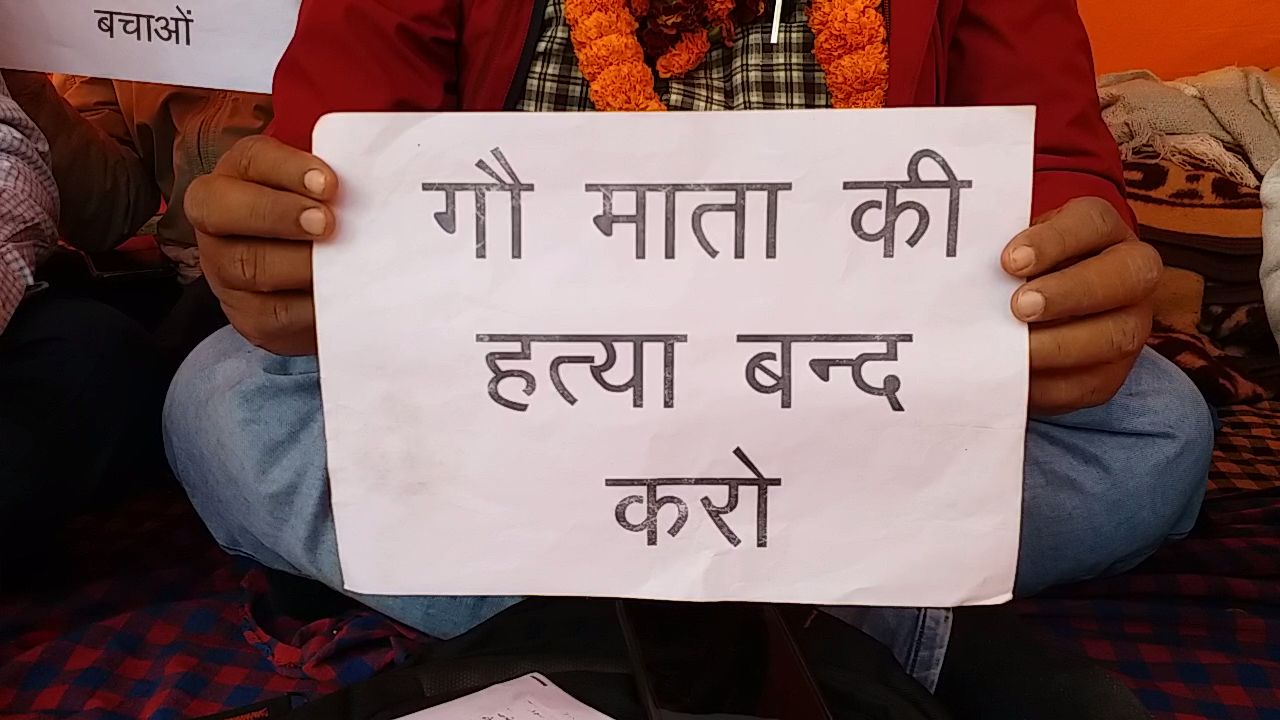 बचाओं
गौ माता की
हत्या बन्द
करो